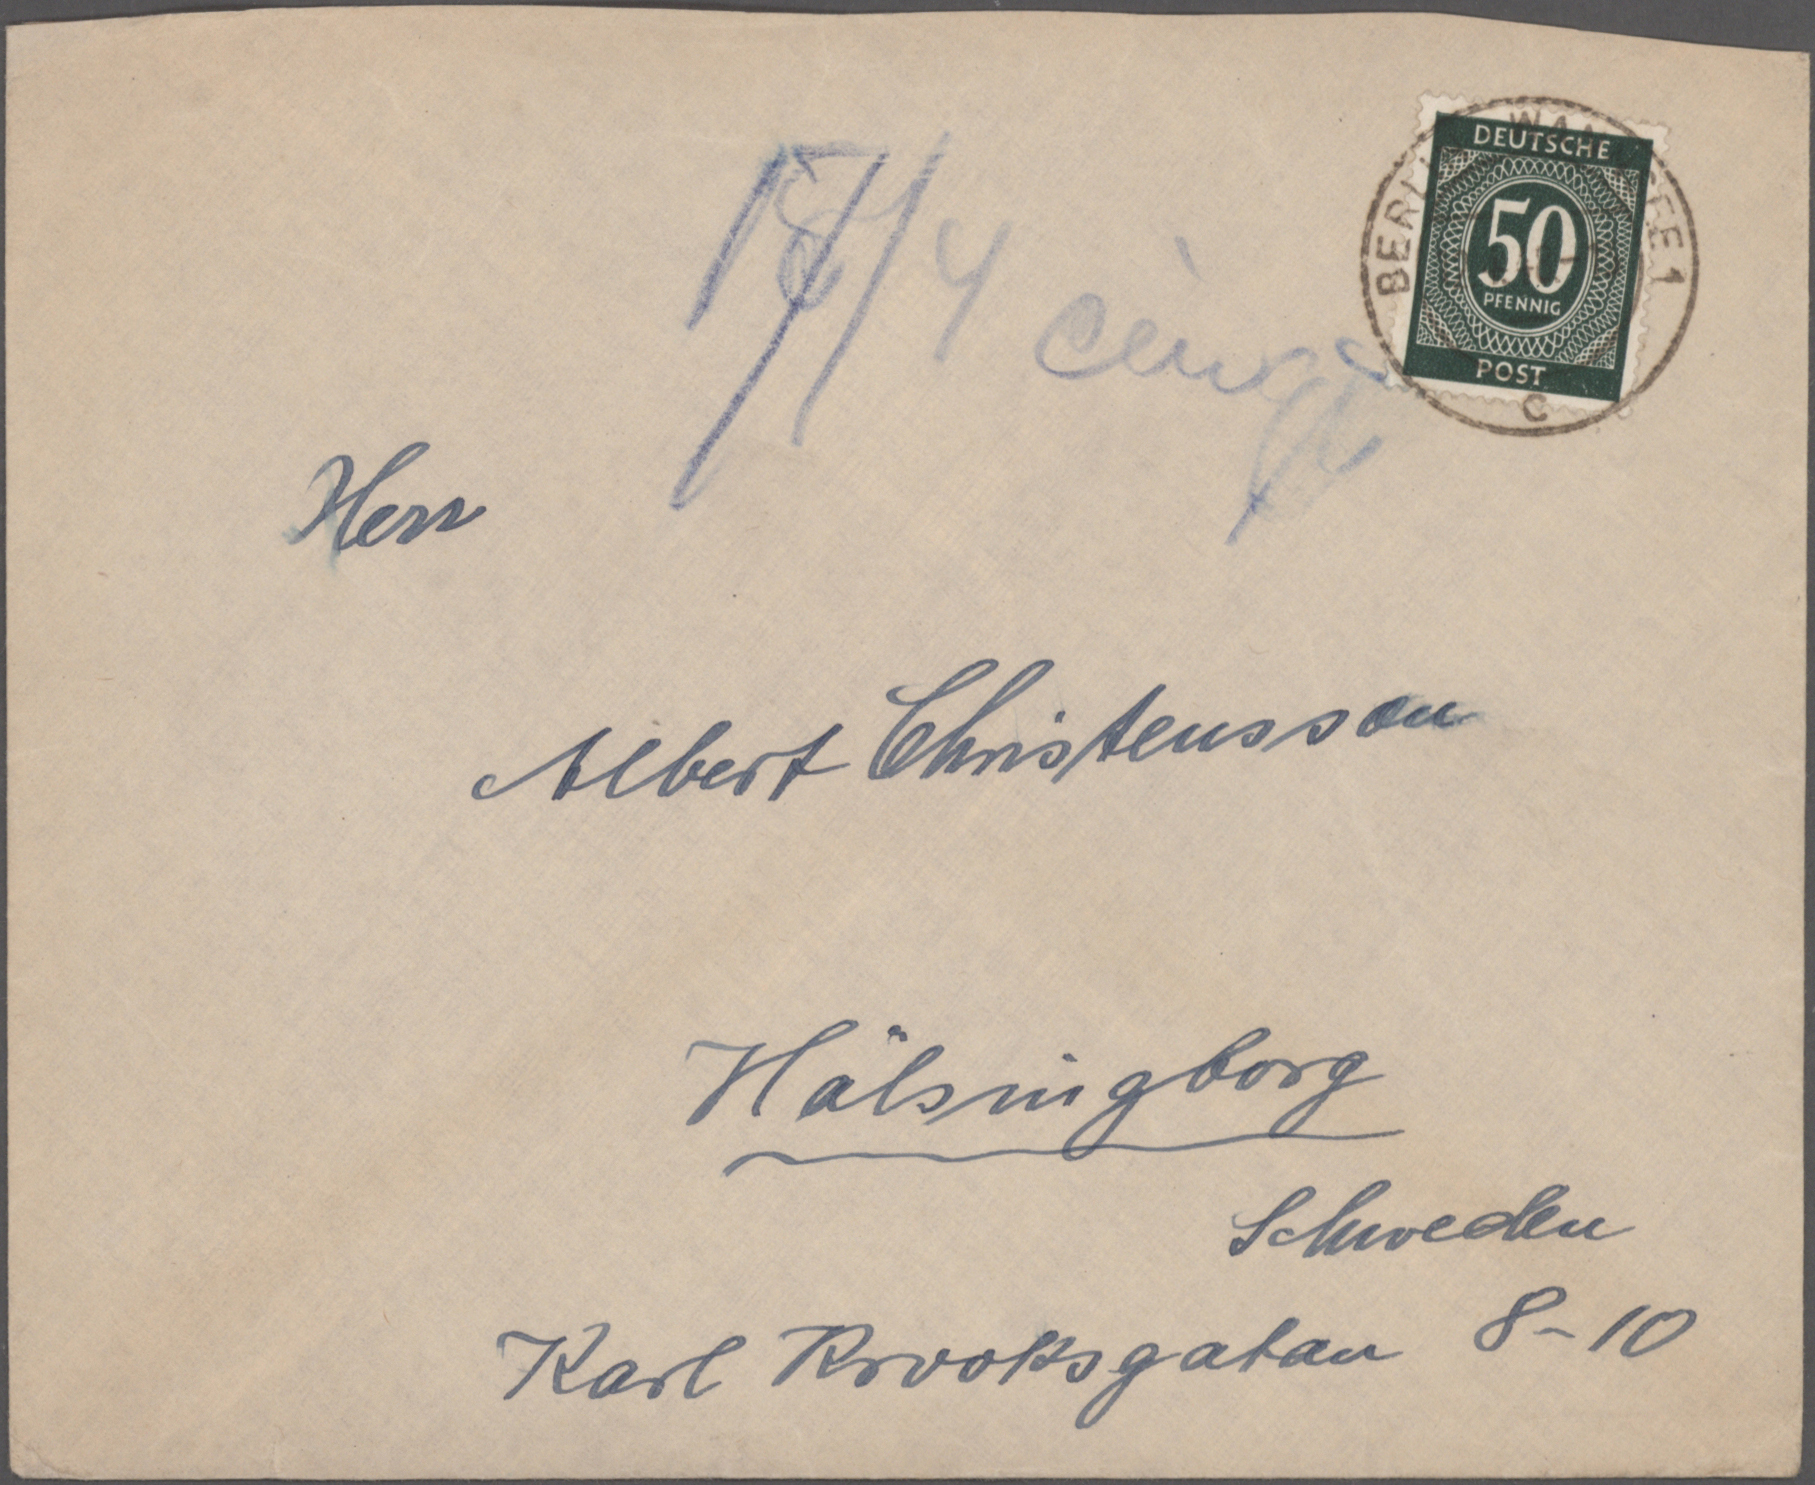 DEUTSCHE
50
PFENNIG
POST
C
Herr
Albert Christensson
Hälsingborg
Schweden
Karl Krooksgatan 8-10